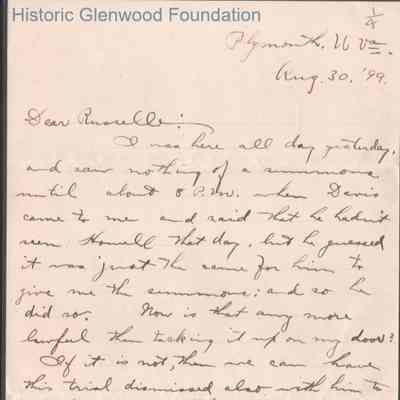 Historic Glenwood Foundation
1/4
Plymouth, W Va.
Aug. 30, '99.
Dear Russelle:
I was here all day yesterday,
and saw nothing of a summons
until about 8 P.M. when Davis
came to me and said that he hadn't
seen Howell that day, but he guessed
it was just the same for him to
give me the summons; and so he
did so. Now is that any more
lawful than tacking it up on my door?
If it is not, then we can have
this trial dismissed also with him to